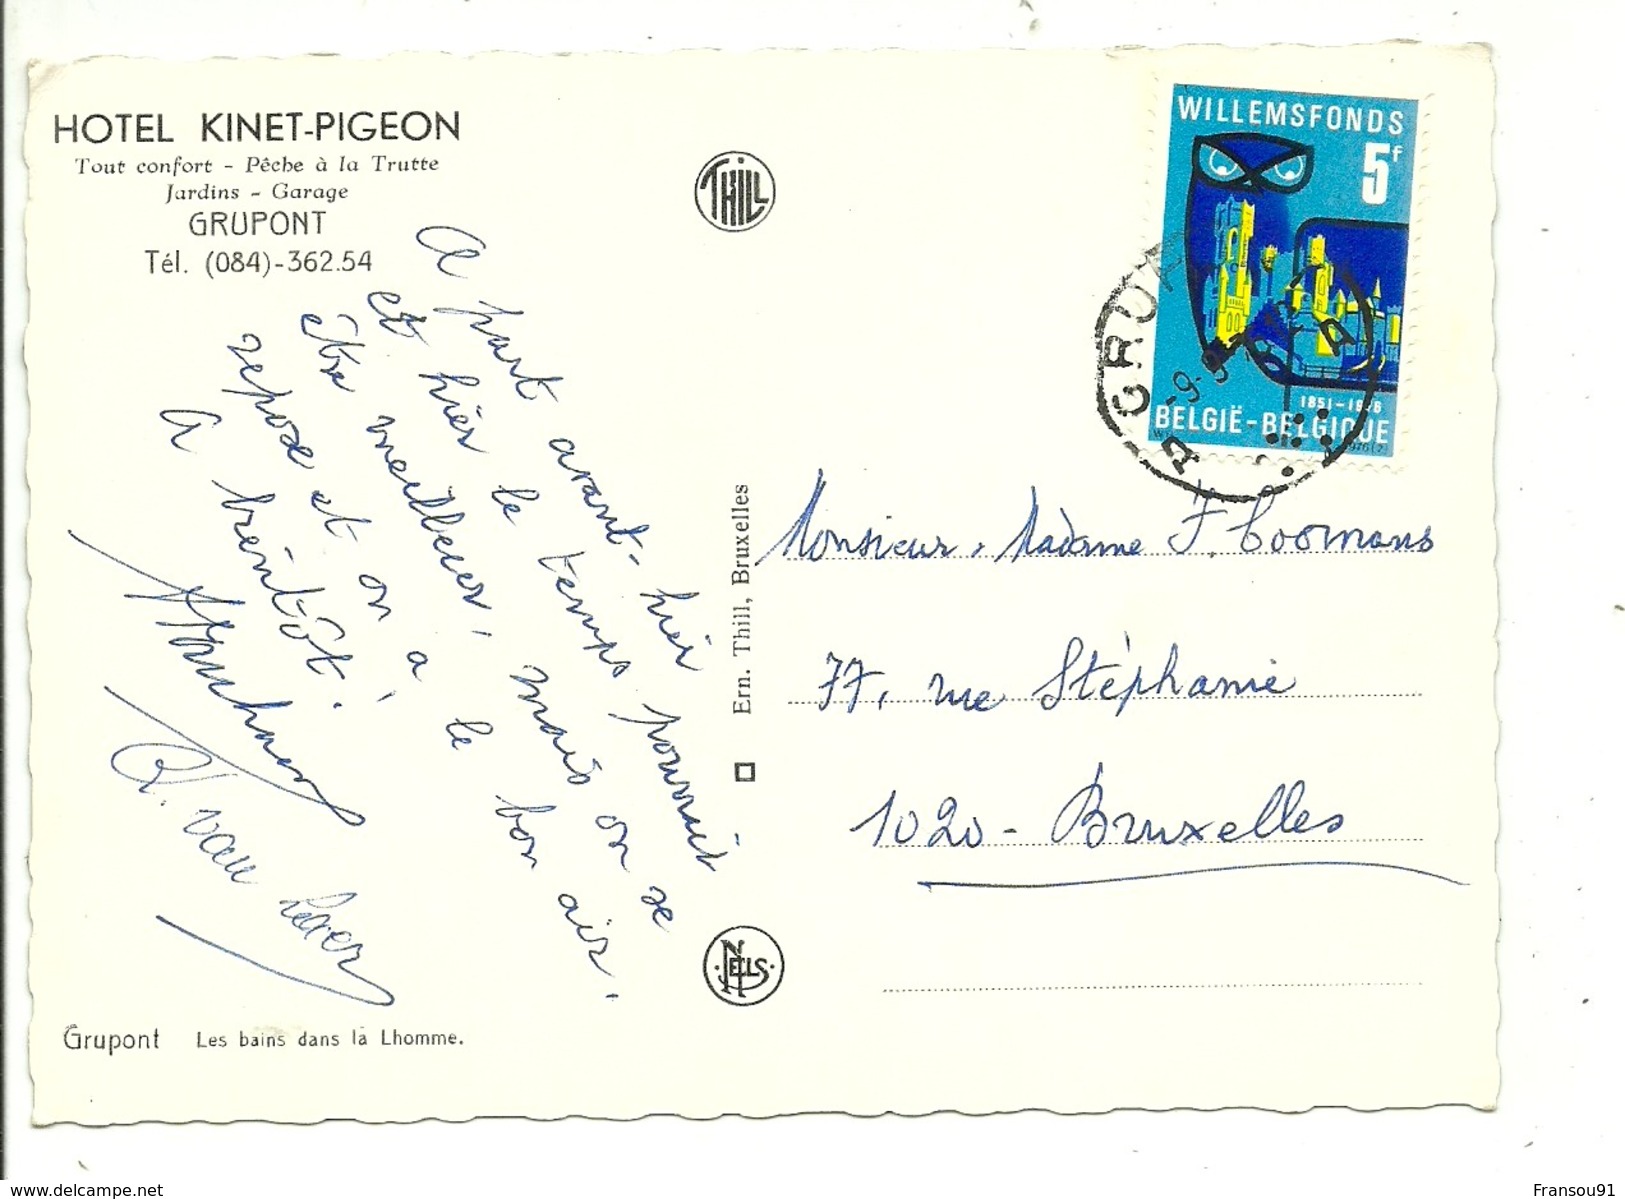 HOTEL KINET-PIGEON
Tout confort - Pêche à la Trutte
Jardins - Garage
GRUPONT
Tél. (084)-362.54
A part avant-hier
et hier le temps pourrait
être meilleur, mais on se
repose et on a le bon air.
A bientôt.
van
Grupont Les bains dans la Lhomme.
THILL
Ern. Thill, Bruxelles
NELS
WILLEMSFONDS
5F
1851-1976
BELGIË-BELGIQUE
GRUP
A A
Monsieur, Madame F. Coomans
77, rue Stéphanie
1020 - Bruxelles
www.delcampe.net
Fransou91